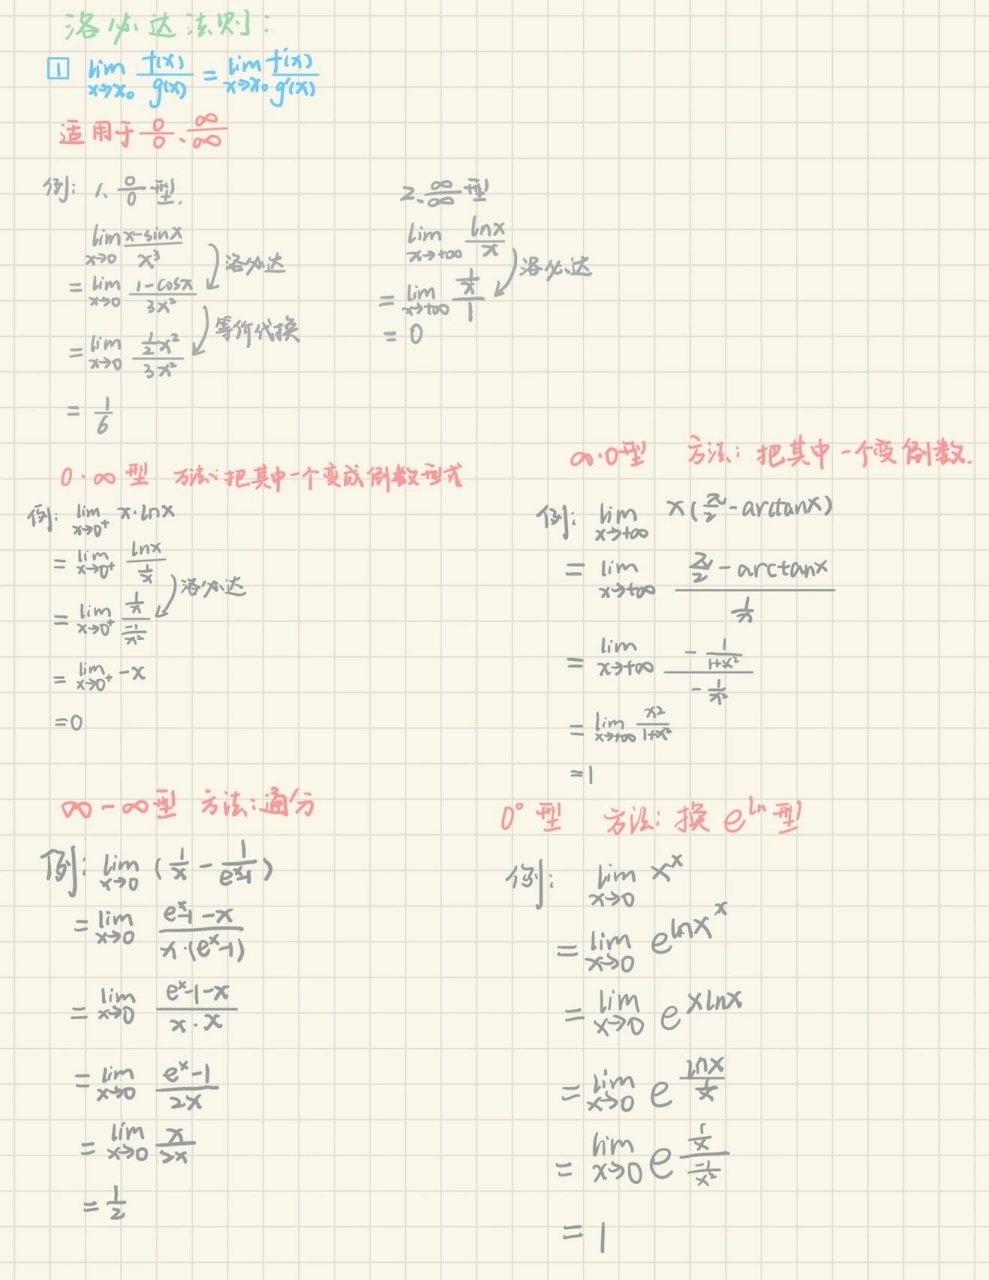 洛必达法则:
1 lim x→x₀ f(x)/g(x) = lim x→x₀ f'(x)/g'(x)
适用于 0/0、∞/∞
例: 1、0/0 型.
lim x→0 (x-sinx)/x³
= lim x→0 (1-cosx)/3x² 洛必达
= lim x→0 (½x²)/3x² 等价代换
= 1/6
2、∞/∞ 型
lim x→+∞ lnx/x
= lim x→+∞ (1/x)/1 洛必达
= 0
0·∞ 型 方法:把其中一个变成倒数形式
例: lim x→0⁺ x·lnx
= lim x→0⁺ lnx/(1/x)
= lim x→0⁺ (1/x)/(-1/x²) 洛必达
= lim x→0⁺ -x
=0
∞·0型 方法:把其中一个变倒数.
例: lim x→+∞ x(π/2-arctanx)
= lim x→+∞ (π/2-arctanx)/(1/x)
= lim x→+∞ (-1/(1+x²))/(-1/x²)
= lim x→+∞ x²/(1+x²)
=1
∞-∞型 方法:通分
例: lim x→0 (1/x - 1/(eˣ-1))
= lim x→0 (eˣ-1-x)/(x·(eˣ-1))
= lim x→0 (eˣ-1-x)/(x·x)
= lim x→0 (eˣ-1)/2x
= lim x→0 x/2x
= 1/2
0⁰ 型 方法:换 e^ln 型
例: lim x→0 xˣ
= lim x→0 e^(lnxˣ)
= lim x→0 e^(xlnx)
= lim x→0 e^(lnx/(1/x))
= lim x→0 e^((1/x)/(-1/x²))
= 1